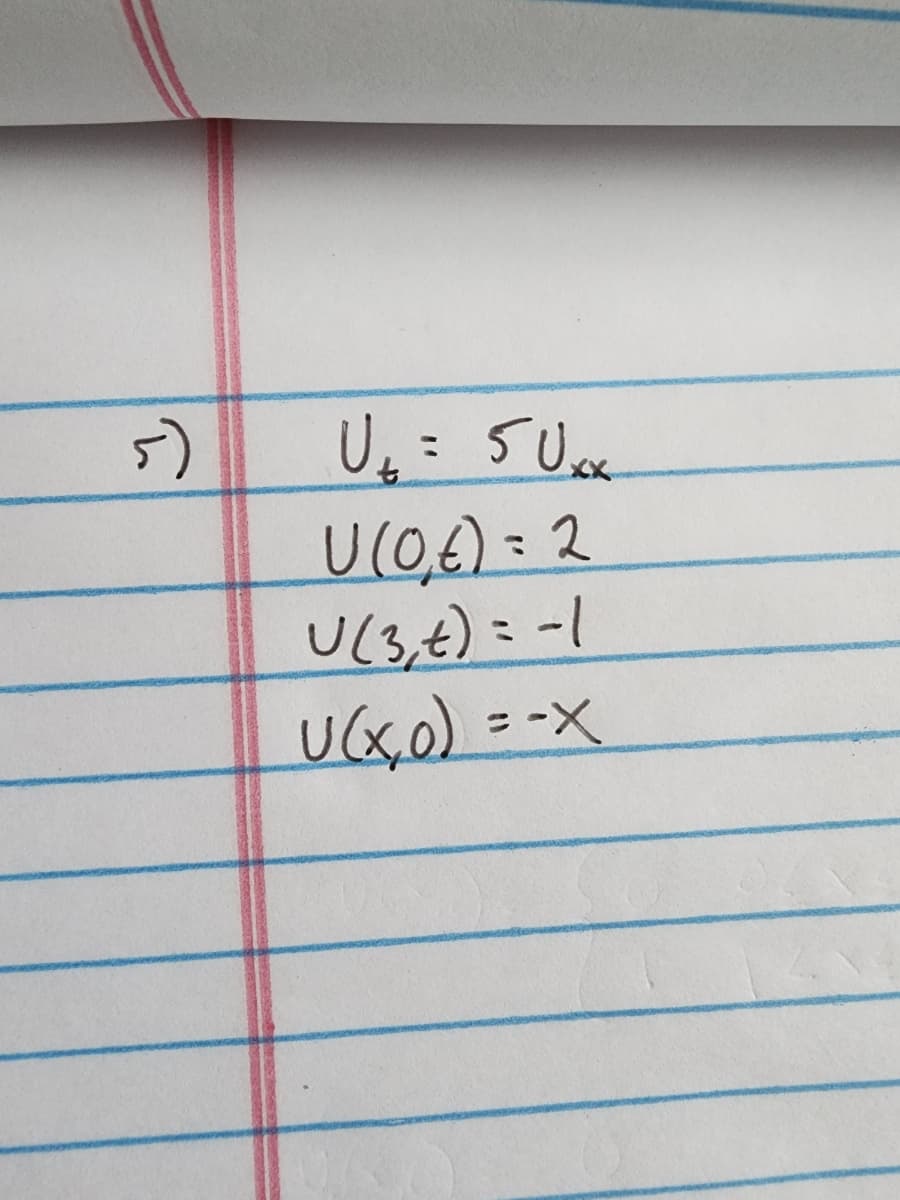 5) U_t = 5 U_xx
U(0,t) = 2
U(3,t) = -1
U(x,0) = -x